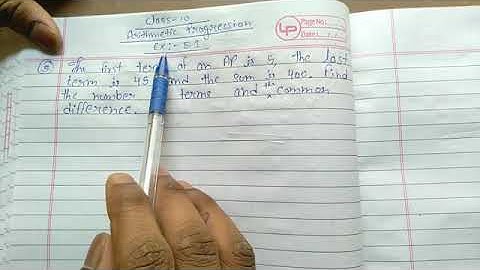 Class-10
Arithmetic Progression
Ex:- 5.1
LP
Page No.:
Date:
⑤ The first term of an AP is 5, the last
term is 45 and the sum is 400. Find
the number terms and the common
difference.